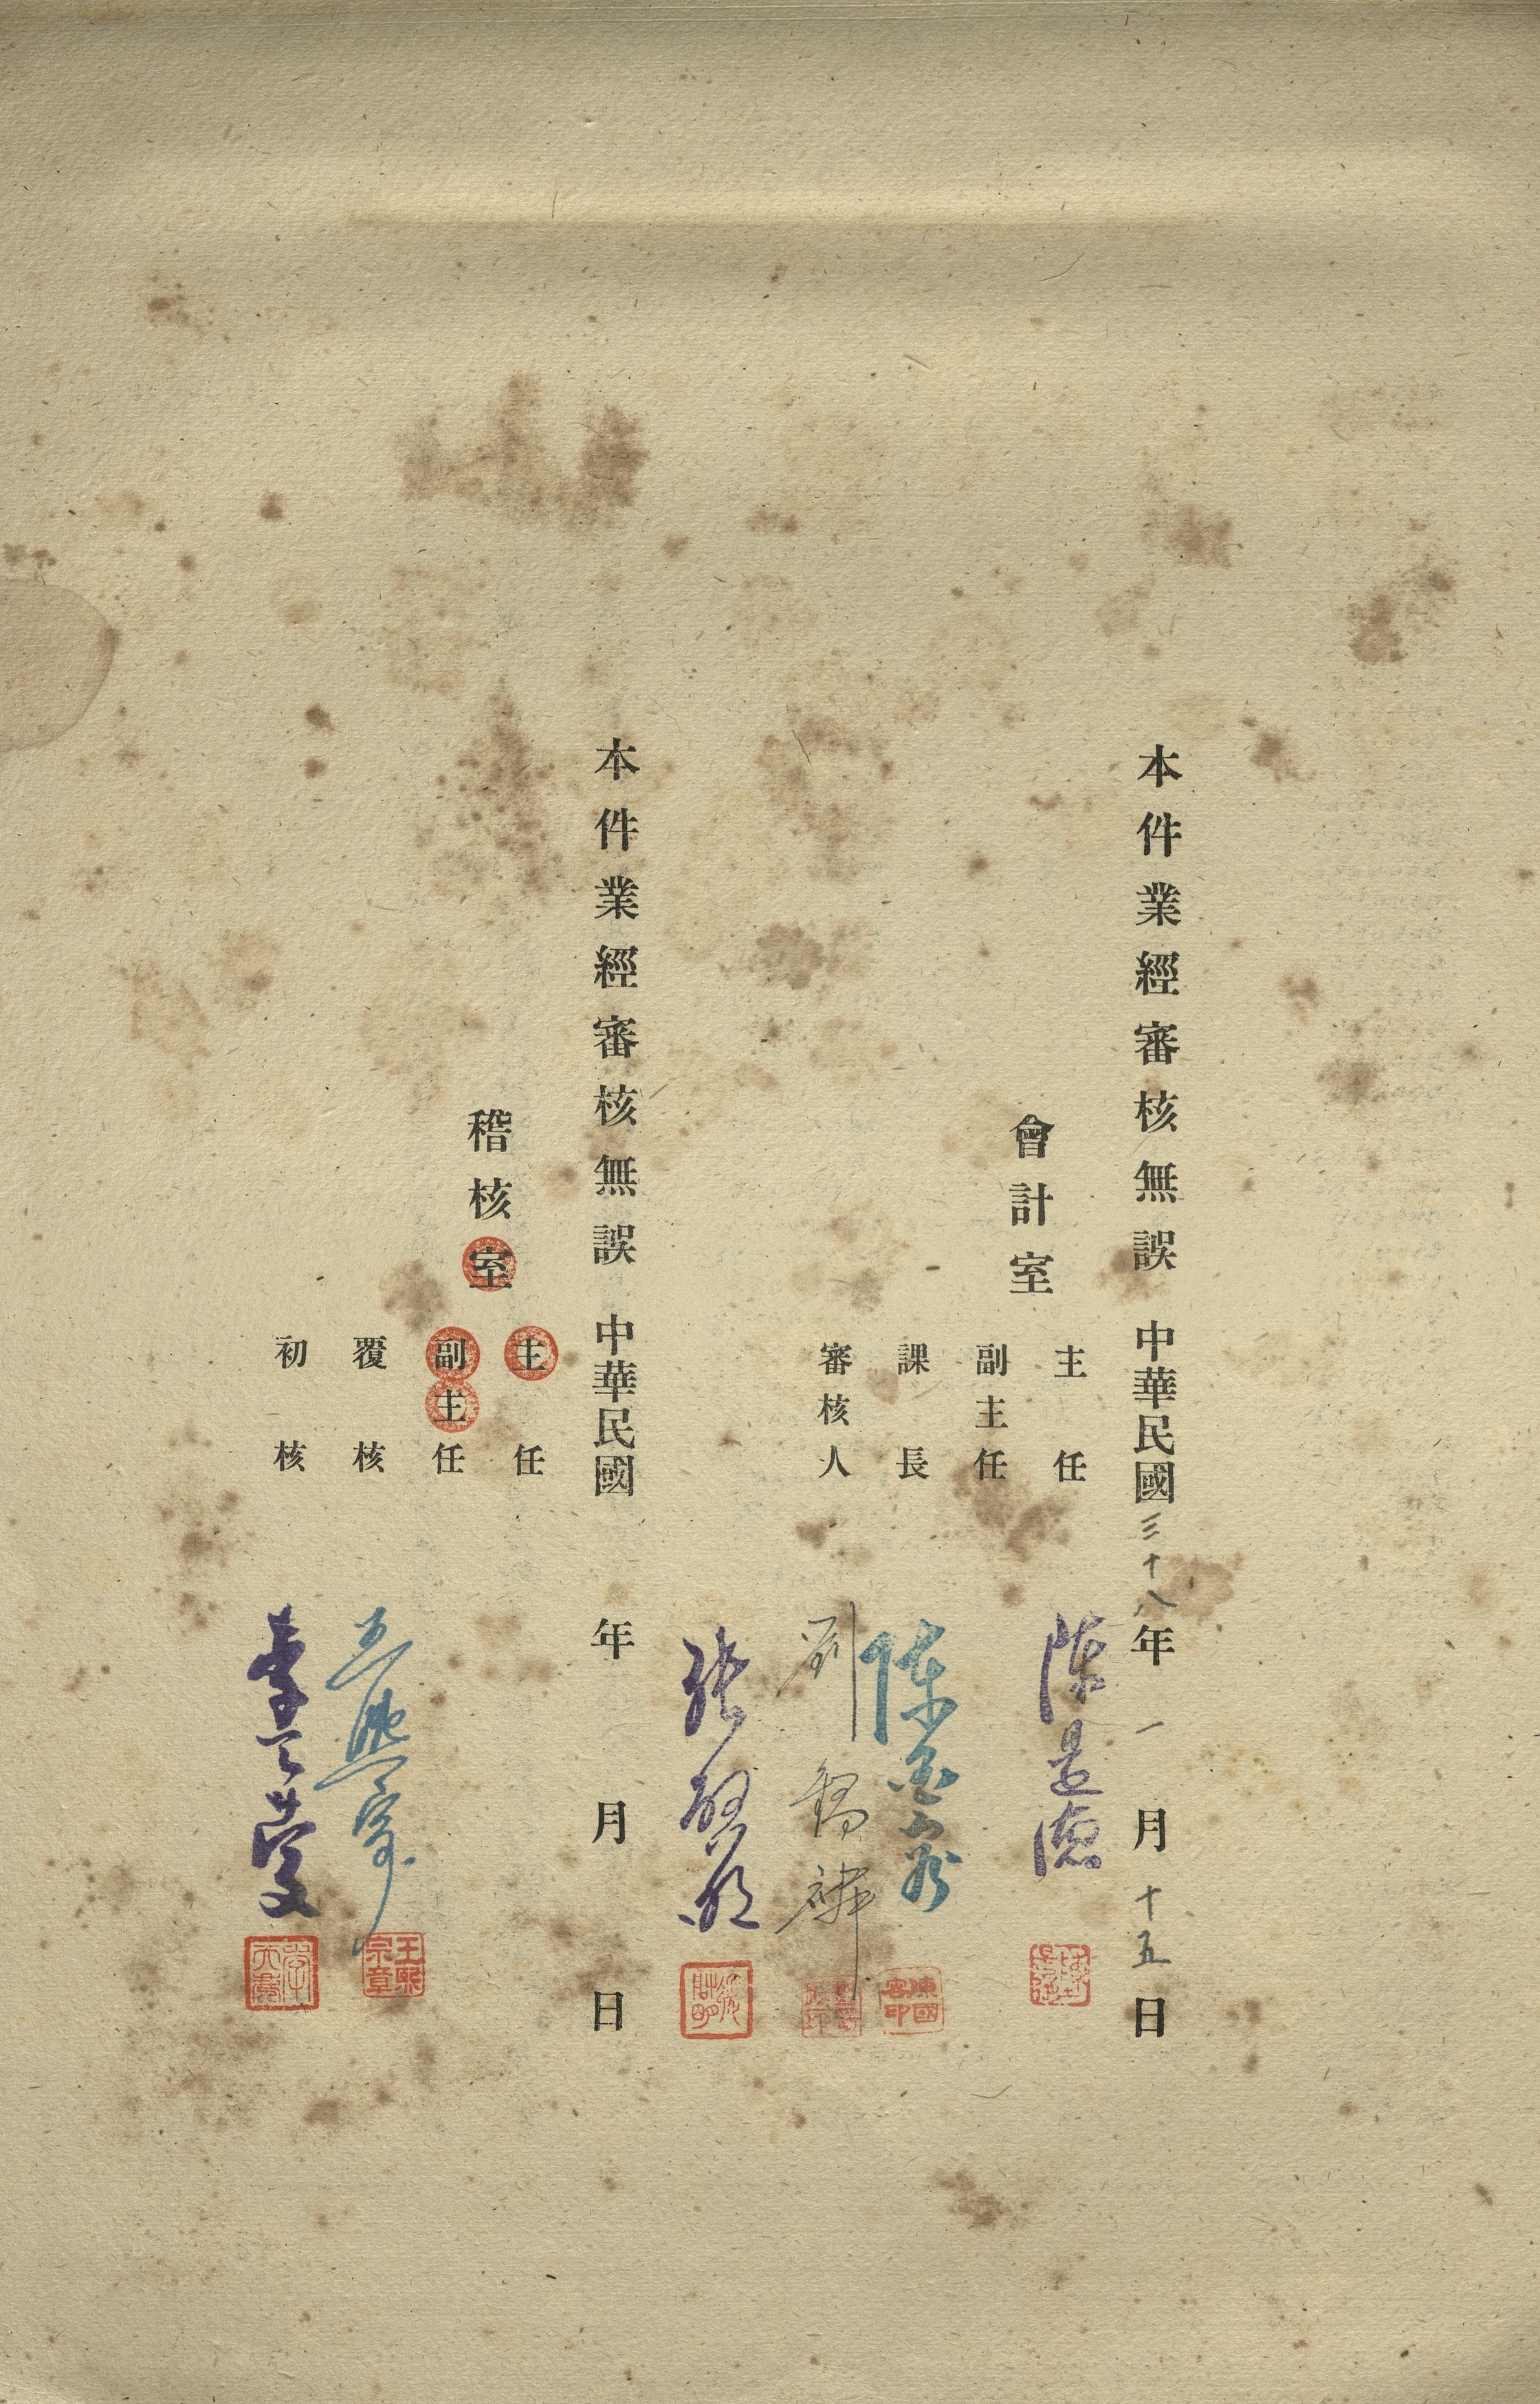 本件業經審核無誤 中華民國三十八年一月十五日
會計室
主任 陳是德
副主任
課長 陳國容
審核人 劉
張
本件業經審核無誤 中華民國 年 月 日
稽核室
主任
副主任
覆核 王熙宗
王熙宗章
初核 李天慶